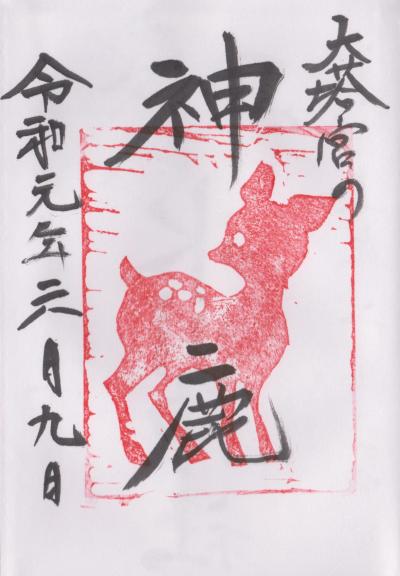 大塔宮の
神鹿
令和元年六月九日